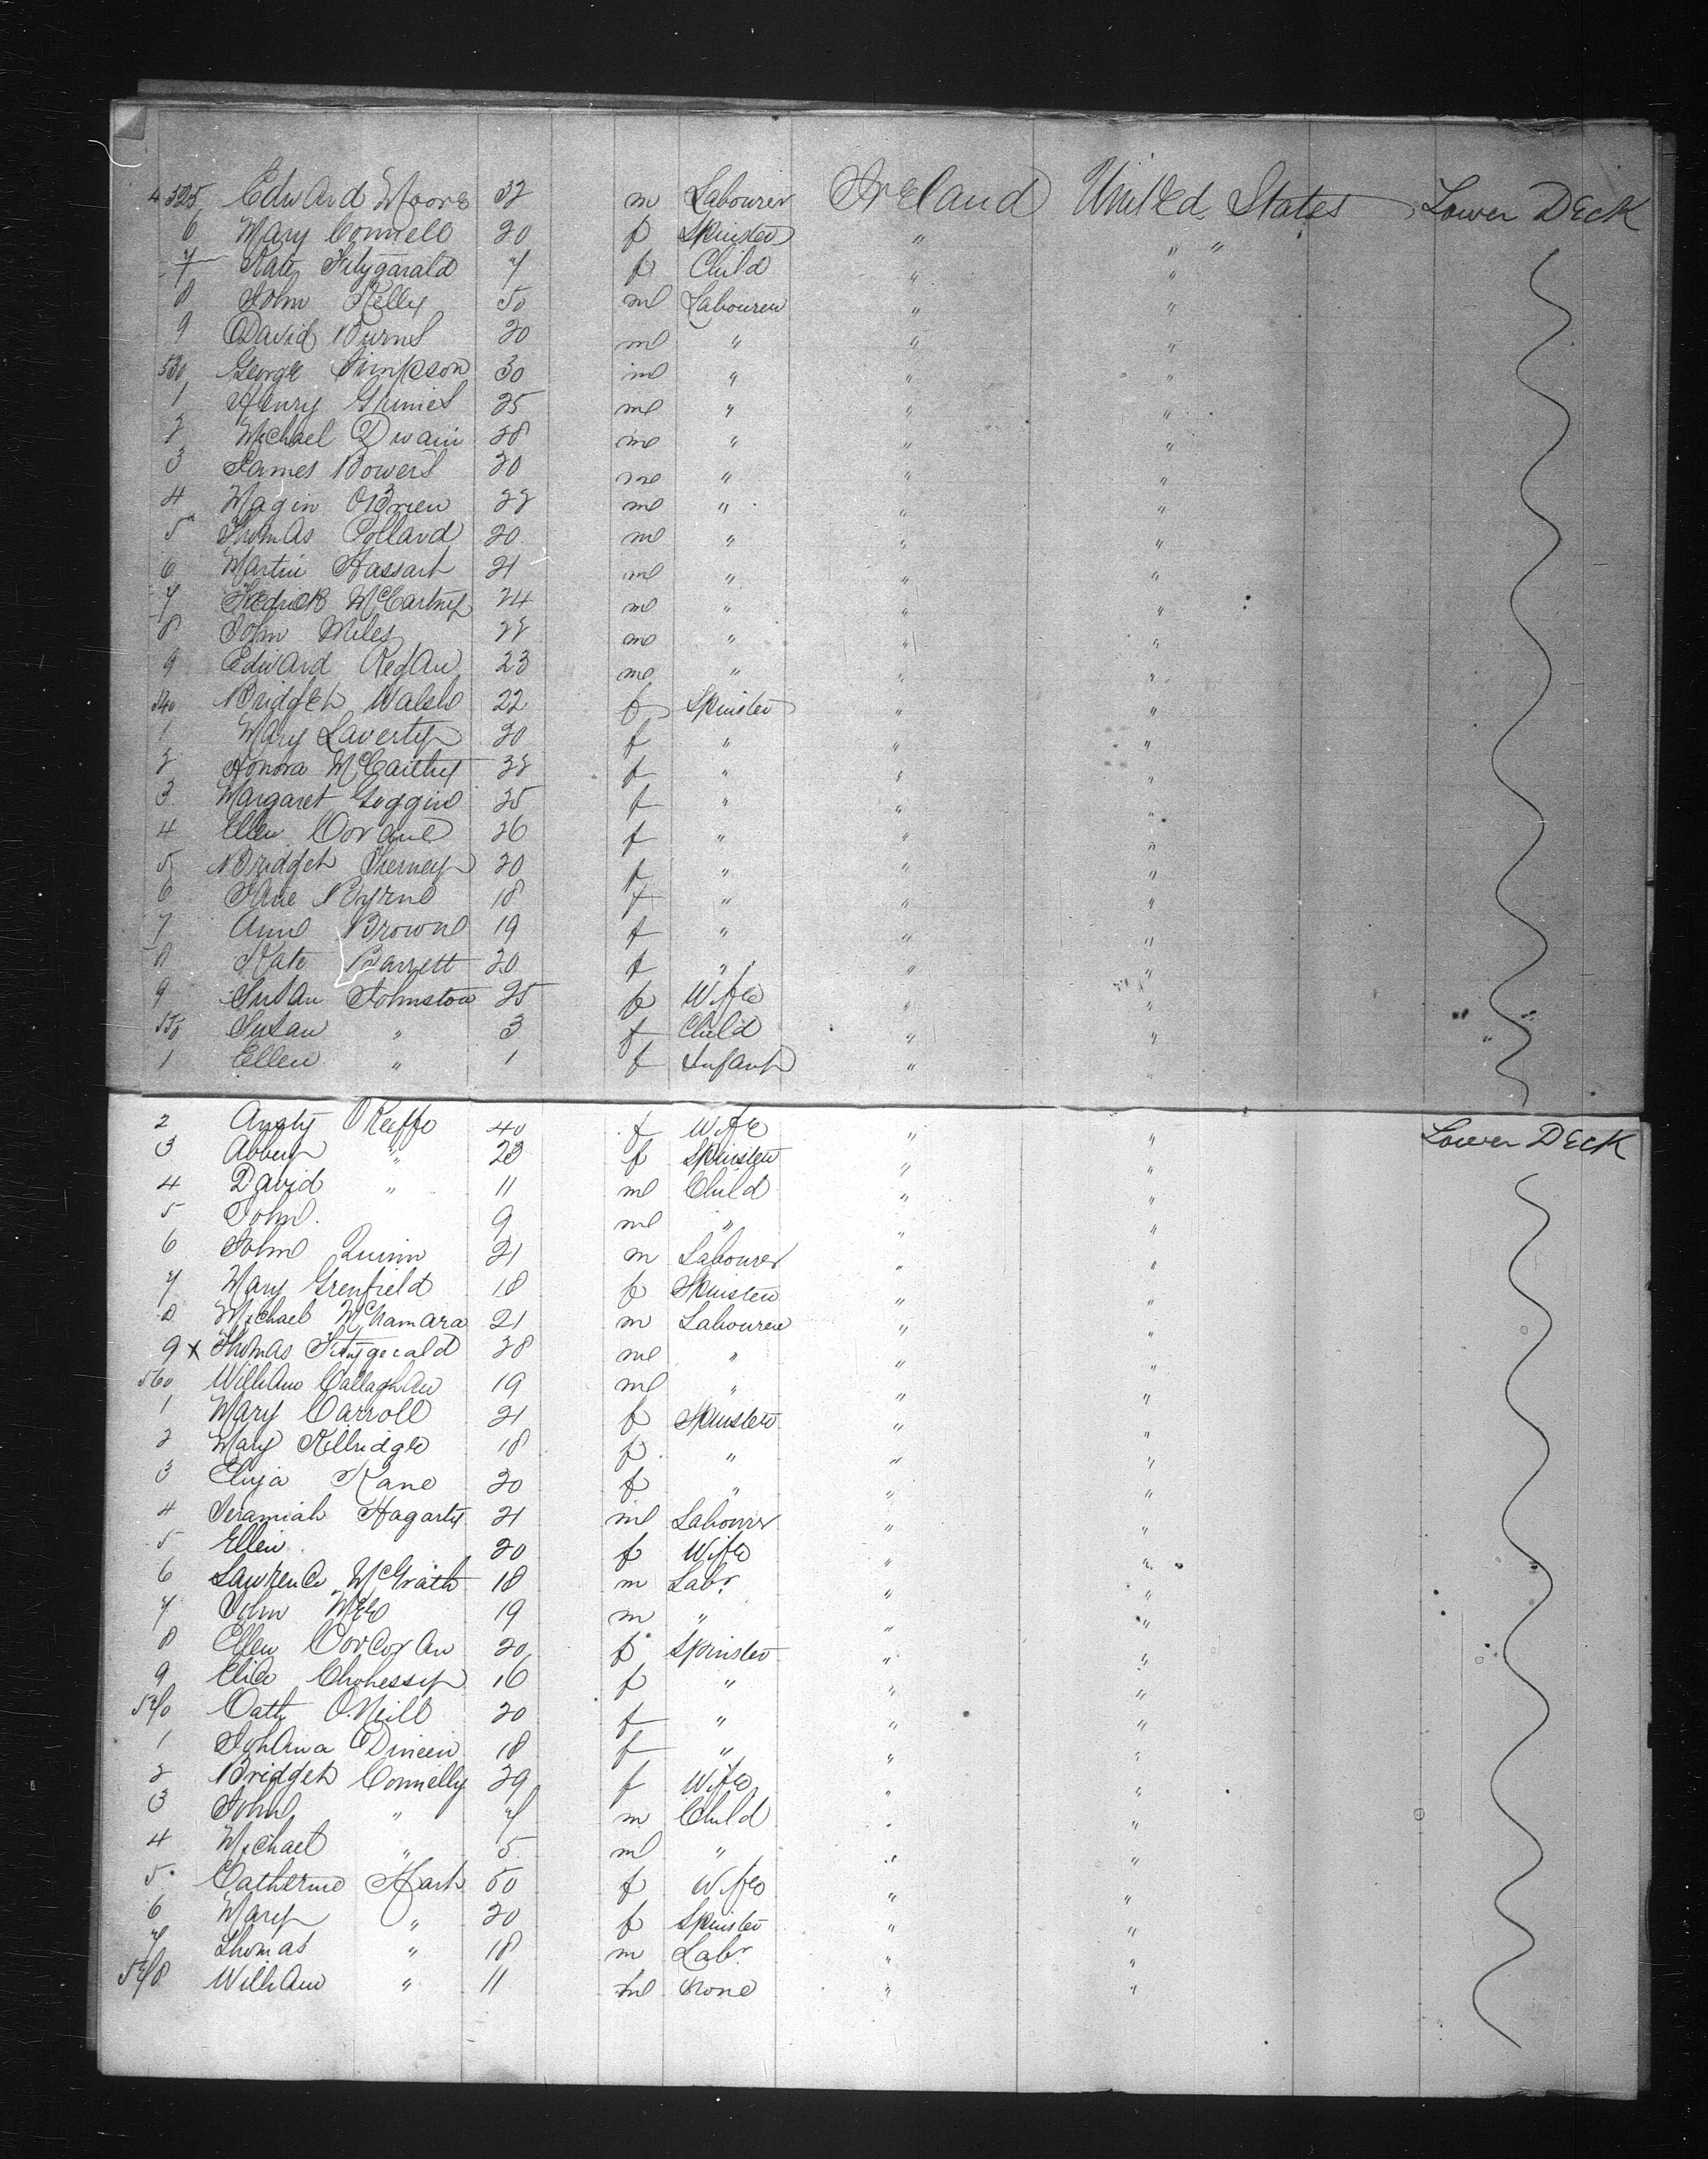 4 525 Edward Moore 32 m Labourer Ireland United States Lower Deck
6 Mary Connell 20 f Spinster " " "
7 Kate Fitzgarald 7 f Child " "
8 John Kelly 50 m Labourer " "
9 David Burns 20 m " " "
530 George Simpson 30 m " " "
1 Henry Grimes 25 m " " "
2 Michael Dwain 28 m " " "
3 James Bowers 20 m " " "
4 OBrien 22 m " " "
5 Thomas Pollard 20 m " " "
6 Martin Hassart 21 m " " "
7 Fredrick McCartney 24 m " " "
8 John Miles 22 m " " "
9 Edward Regan 23 m " " "
540 Bridget Walsh 22 f Spinster " "
1 Mary Laverty 20 f " " "
2 Honora McCarthy 32 f " " "
3 Margaret Goggin 25 f " " "
4 Ellen 26 f " " "
5 Bridget Tierney 20 f " " "
6 Jane Byrne 18 f " " "
7 Anne Brown 19 f " " "
8 Kate Barrett 20 f " " "
9 Susan Johnston 25 f Wife " "
550 Susan " 3 f Child " " "
1 Ellen " 1 f Infant " "
2 OKeeffe 40 f Wife " " Lower Deck
3 Abbey " 23 f Spinster " "
4 David " 11 m Child " "
5 John 9 m " " "
6 John Quinn 21 m Labourer " "
7 Mary Grenfield 18 f Spinster " "
8 Michael McNamara 21 m Labourer " "
9 x Thomas Fitzgerald 28 m " " "
560 William Callaghan 19 m " " "
1 Mary Carroll 21 f Spinster " "
2 Mary Kilbridge 18 f " " "
3 Eliza Kane 20 f " " "
4 Jeramiah Hagarty 21 m Labourer " "
5 Ellen 20 f Wife " "
6 Lawrence McGrath 18 m Labr " "
7 John 19 m " " "
8 Ellen Corcoran 20 f Spinster " "
9 16 f " " "
570 Cath ONeill 20 f " " "
1 Johana Dineen 18 f " " "
2 Bridget Connelly 29 f Wife " "
3 John " 7 m Child " "
4 Michael " 5 m " " "
5 Catherine Hart 50 f Wife " "
6 Mary " 20 f Spinster " "
7 Thomas " 18 m Labr " "
578 William " 11 m None " "